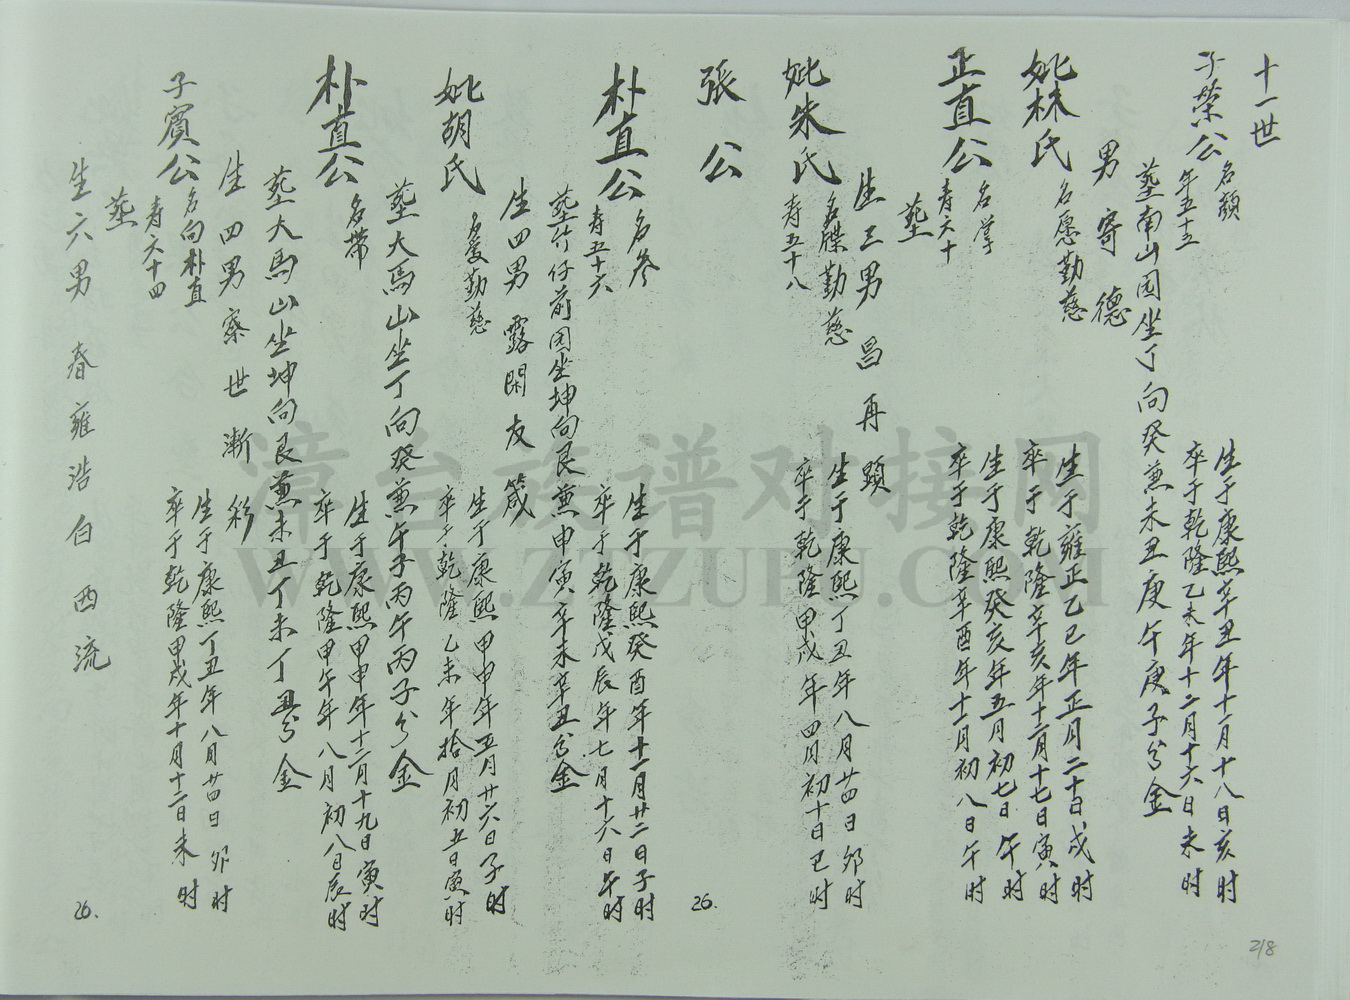 十一世
子榮公
名頗
年五十五
生于康熙辛丑年十一月十八日亥时
卒于乾隆乙未年十二月十六日未时
塟南山园坐丁向癸兼未丑庚午庚子分金
男 寄 德
妣林氏
名愿勤慈
生于雍正乙巳年正月二十日戍时
卒于乾隆辛亥年十二月十七日寅时
正直公
名掌
寿六十
生于康熙癸亥年五月初七日午时
卒于乾隆辛酉年十一月初八日午时
塟
生三男 昌 再 顕
妣朱氏
名牒勤慈
寿五十八
生于康熙丁丑年八月廿四日夘时
卒于乾隆甲戌年四月初十日巳时
張公
26.
朴直公
名参
寿五十六
生于康熙癸酉年十一月廿二日子时
卒于乾隆戊辰年七月十六日午时
塟竹仔前园坐坤向艮兼申寅辛未辛丑分金
生四男 露 閑 友 箴
妣胡氏
名爱勤慈
生于康熙甲申年五月廿六日子时
卒于乾隆乙未年拾月初五日寅时
塟大馬山坐丁向癸兼午子丙午丙子分金
朴直公
名帶
生于康熙甲申年十二月十九日寅时
卒于乾隆甲午年八月初八日辰时
塟大馬山坐坤向艮兼未丑丁未丁丑分金
生四男 寮 世 漸 彩
子賓公
名向朴直
寿六十四
生于康熙丁丑年八月廿四日夘时
卒于乾隆甲戍年十月十二日未时
塟
生六男 春 雍 浩 白 西 流
26.
218
漳台族谱对接网
WWW.ZTZUPU.COM